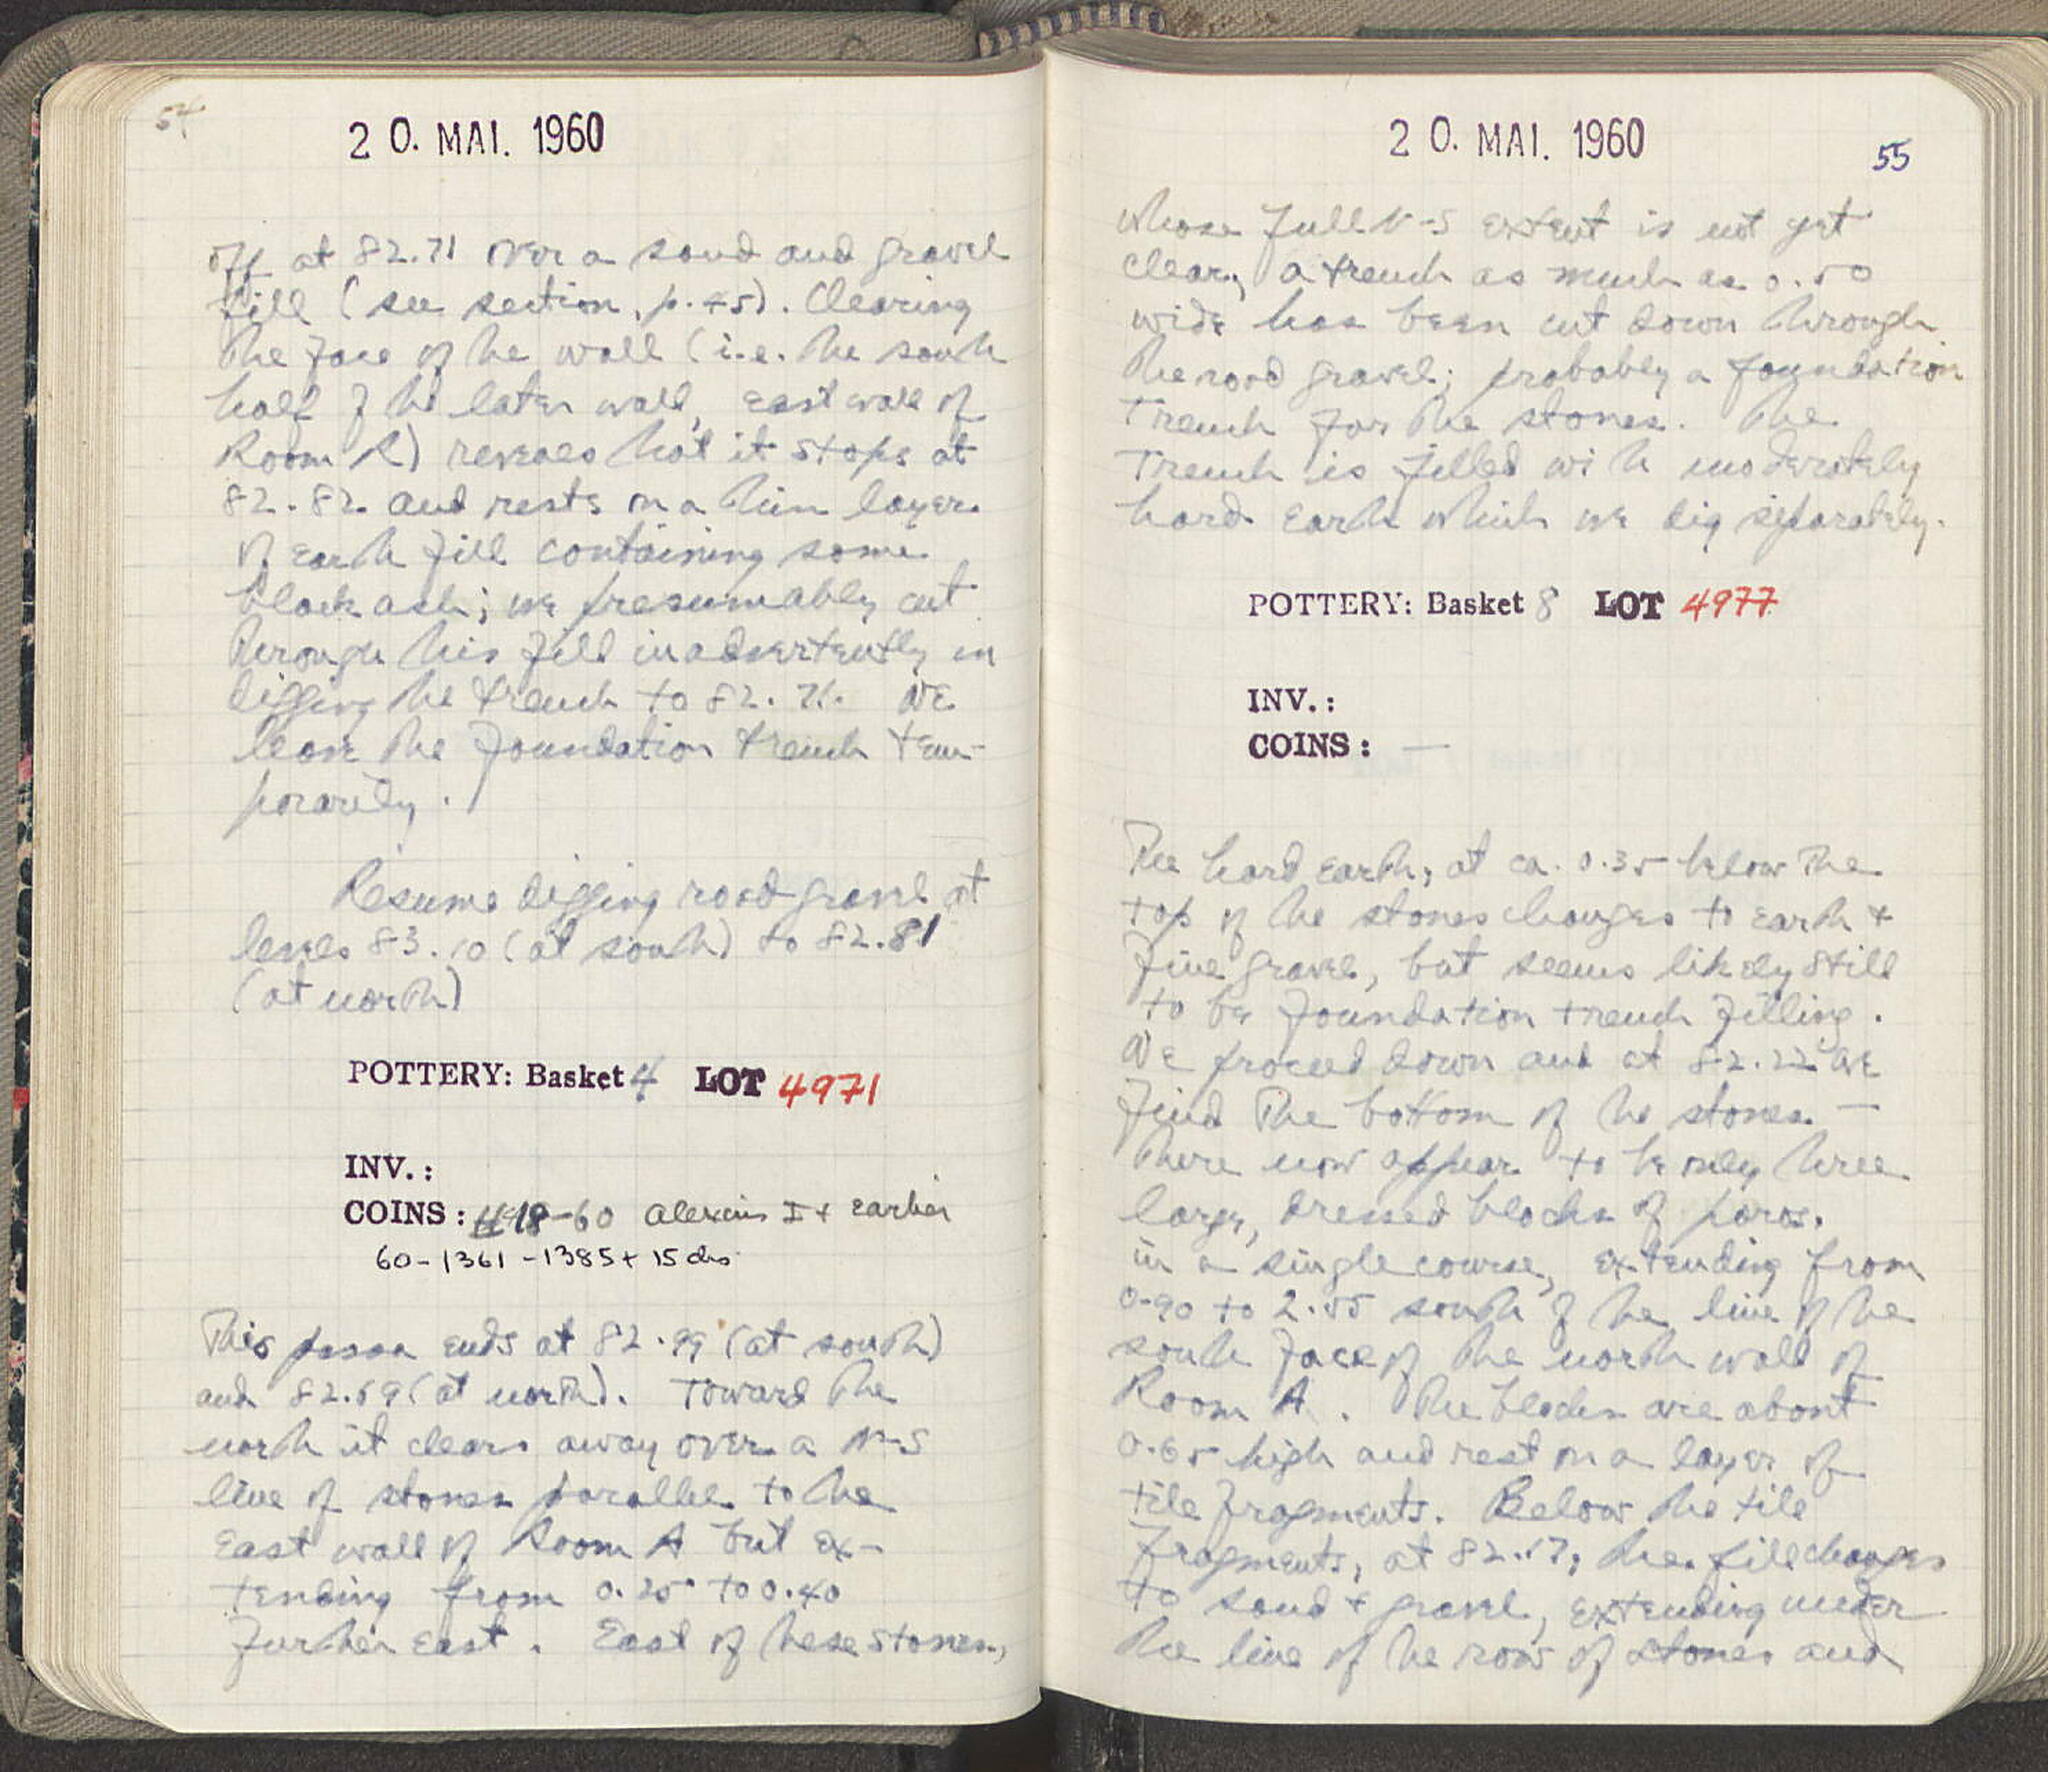 54
20. MAI. 1960
off at 82.71 over a sand and gravel
fill (see section, p. 45). Clearing
the face of the wall (i.e. the south
half of the later wall, east wall of
Room A) reveals that it stops at
82.82 and rests on a thin layer
of earth fill containing some
black ash; we presumably cut
through this fill inadvertently in
digging the trench to 82.71. We
leave the foundation trench tem-
porarily.
Resume digging road gravel at
levels 83.10 (at south) to 82.81
(at north)
POTTERY: Basket 4 LOT 4971
INV.:
COINS: 18-60 Alexius I + Earlier
60-1361-1385 + 15 dis
This passa ends at 82.99 (at south)
and 82.69 (at north). Toward the
north it clears away over a N-S
line of stones parallel to the
East wall of Room A but ex-
tending from 0.25 to 0.40
further east. East of these stones,
20. MAI. 1960
55
whose full N-S extent is not yet
clear, a trench as much as 0.50
wide has been cut down through
the road gravel; probably a foundation
trench for the stones. The
trench is filled with moderately
hard earth which we dig separately.
POTTERY: Basket 8 LOT 4977
INV.:
COINS: —
The hard earth, at ca. 0.35 below the
top of the stones changes to earth +
fine gravel, but seems likely still
to be foundation trench filling.
We proceed down and at 82.22 we
find the bottom of the stones —
there now appear to be only three
large, dressed blocks of poros.
in a single course, extending from
0.90 to 2.55 south of the line of the
south face of the north wall of
Room A. The blocks are about
0.65 high and rest on a layer of
tile fragments. Below the tile
fragments, at 82.17, the fill changes
to sand + gravel, extending under
the line of the row of stones and